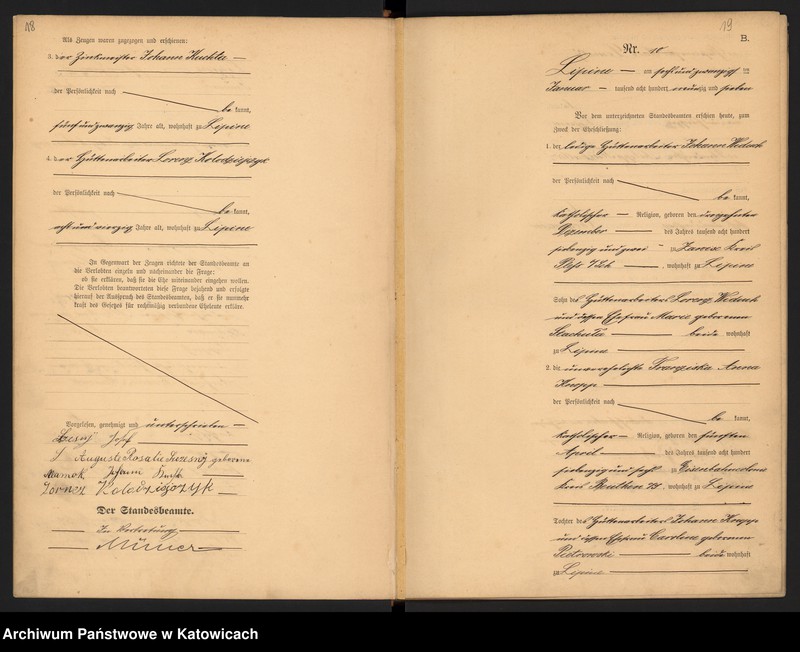 18
Als Zeugen waren zugezogen und erschienen:
3. der Zinkmeister Johann Kuchta —
der Persönlichkeit nach
be kannt,
fünfundzwanzig Jahre alt, wohnhaft zu Lipine
4. der Hüttenarbeiter Lorenz Kolodziejczyk
der Persönlichkeit nach
be kannt,
achtundvierzig Jahre alt, wohnhaft zu Lipine
In Gegenwart der Zeugen richtete der Standesbeamte an
die Verlobten einzeln und nacheinander die Frage:
ob sie erklären, daß sie die Ehe miteinander eingehen wollen.
Die Verlobten beantworteten diese Frage bejahend und erfolgte
hierauf der Ausspruch des Standesbeamten, daß er sie nunmehr
kraft des Gesetzes für rechtmäßig verbundene Eheleute erkläre.
Vorgelesen, genehmigt und unterschrieben —
Josef
Auguste Rosalie geborene
Mamok Johann
Kolodziejczyk
Der Standesbeamte.
In Vertretung
19
B.
Nr. 10
Lipine — am sechsundzwanzigsten
Januar — tausend acht hundert neunzig und sieben
Vor dem unterzeichneten Standesbeamten erschien heute, zum
Zweck der Eheschließung:
1. der ledige Hüttenarbeiter Johann
der Persönlichkeit nach
be kannt,
katholischer — Religion, geboren den
Dezember — des Jahres tausend acht hundert
siebenzig und zwei — zu Kreis
, wohnhaft zu Lipine
Sohn des Hüttenarbeiters Lorenz
und dessen Ehefrau Marie geborenen
Stachulla — beide wohnhaft
zu Lipine
2. die unverehelichte Franziska Anna
Knopp
der Persönlichkeit nach
be kannt,
katholischer — Religion, geboren den fünften
April — des Jahres tausend acht hundert
siebenzig und sechs — zu
Kreis Beuthen O/S, wohnhaft zu Lipine
Tochter des Hüttenarbeiters Johann Knopp
und dessen Ehefrau Caroline geborenen
Pietrowski — beide wohnhaft
zu Lipine
Archiwum Państwowe w Katowicach